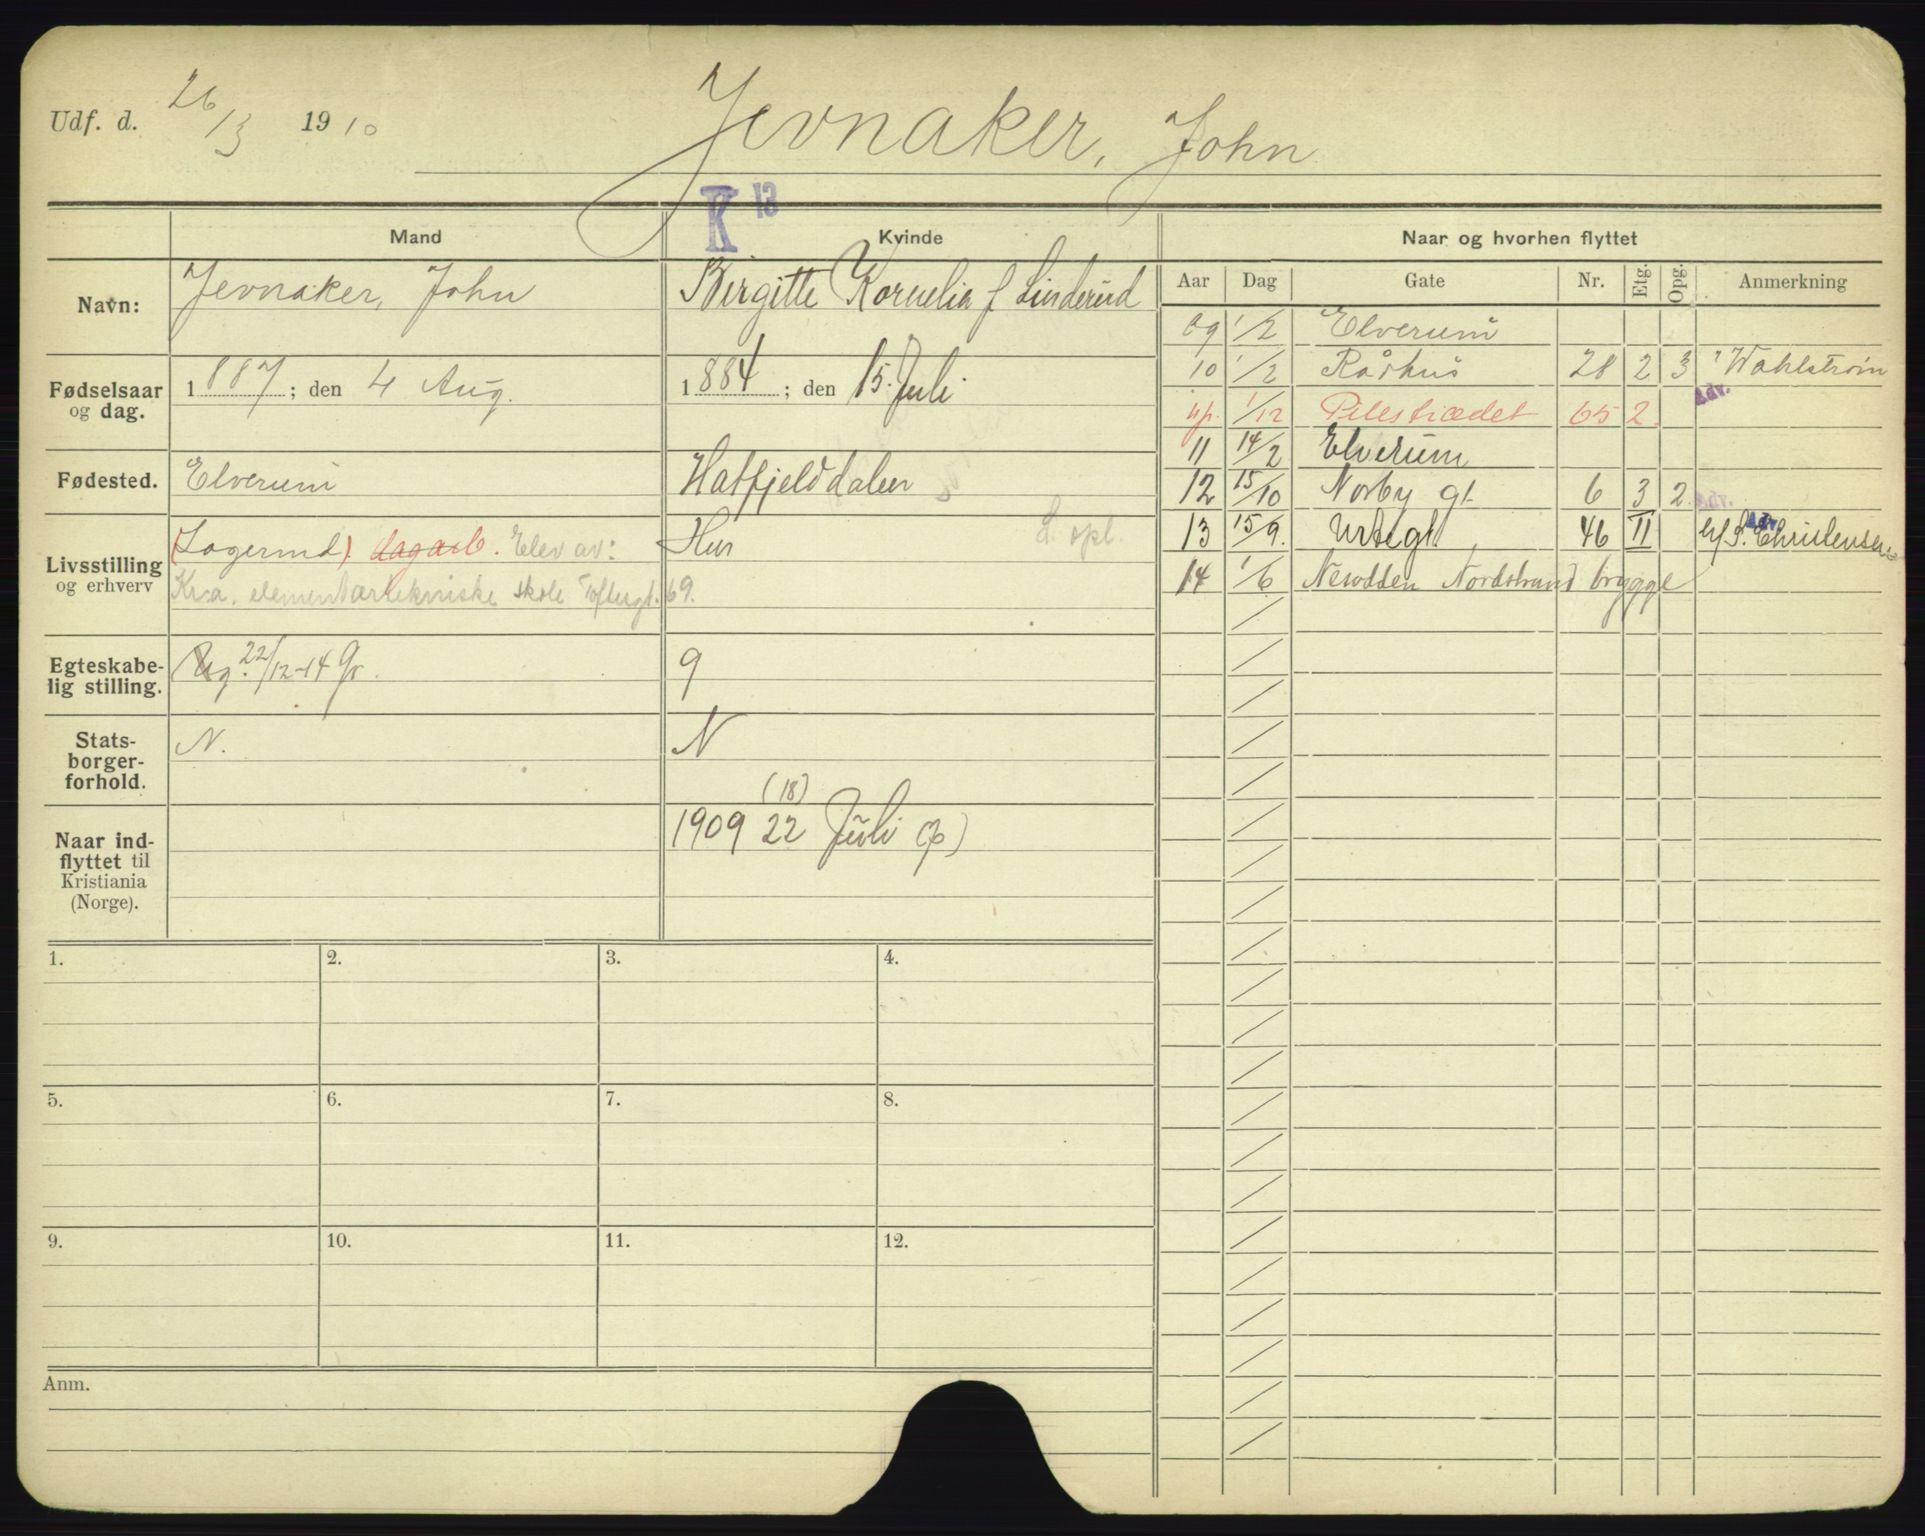 Udf. d. 26/3 1910
Jevnaker, John
K 13
Mand
Kvinde
Naar og hvorhen flyttet
Navn:
Jevnaker, John
Birgitte Kornelia f Linderud
Fødselsaar
og dag.
1887; den 4 Aug.
1884; den 15. Juli
Fødested.
Elverum
Hatfjelddalen
Livsstilling
og erhverv
(Lagermd) dagarb. Elev av:
Kr.a. elementærtekniske skole Toftesgt. 69.
Hus
L. opl.
Egteskabe-
lig stilling.
Ug. 22/12-14 G
g
Stats-
borger-
forhold.
N.
N
Naar ind-
flyttet til
Kristiania
(Norge).
(18)
1909 22 Juli
Aar Dag Gate Nr. Etg. Opg. Anmerkning
09 1/2 Elverum
10 1/2 Råshus 28 2 3 Wahlstrøm
Adv.
up. 1/12 Pilestrædet 65 2
11 14/2 Elverum
12 15/10 Norby gt. 6 3 2 Adv.
13 15/9. Urtegt. 46 II Adv. h/ S. Christensen
14 1/6 Nesodden Nordstrand brygge
1. 2. 3. 4.
5. 6. 7. 8.
9. 10. 11. 12.
Anm.